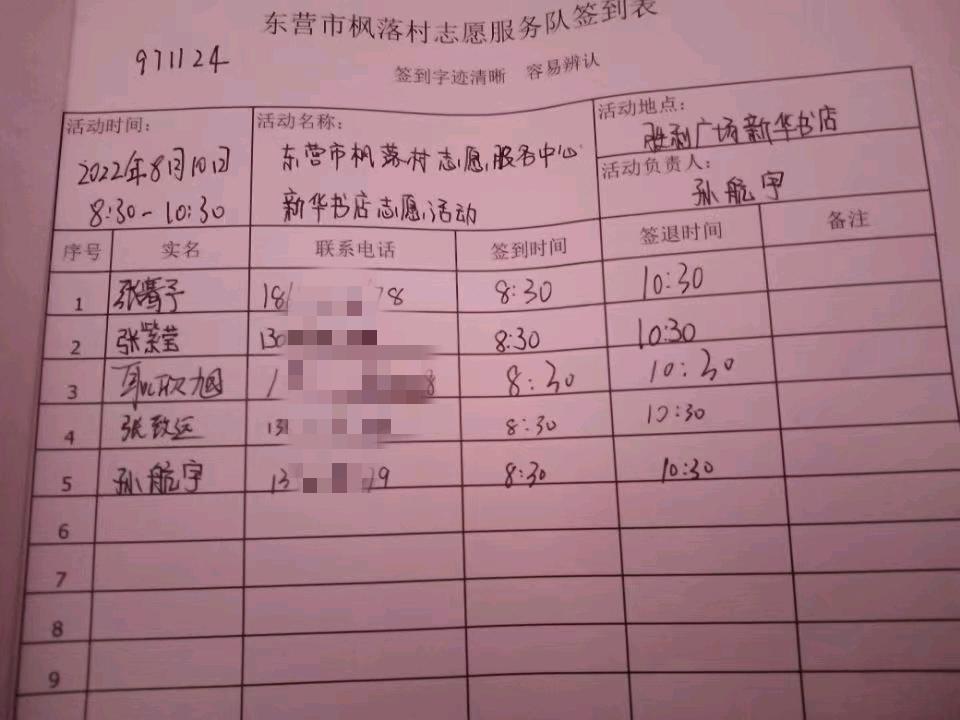 东营市枫落村志愿服务队签到表
971124
签到字迹清晰 容易辨认
活动时间:
2022年8月10日
8:30-10:30
活动名称:
东营市枫落村志愿服务中心
新华书店志愿活动
活动地点:
胜利广场新华书店
活动负责人:
孙航宇
序号 实名 联系电话 签到时间 签退时间 备注
1 张 子 18 78 8:30 10:30
2 张紫莹 130 8:30 10:30
3 耿欣旭 1 8 8:30 10:30
4 张致远 13 8:30 10:30
5 孙航宇 13 79 8:30 10:30
6
7
8
9